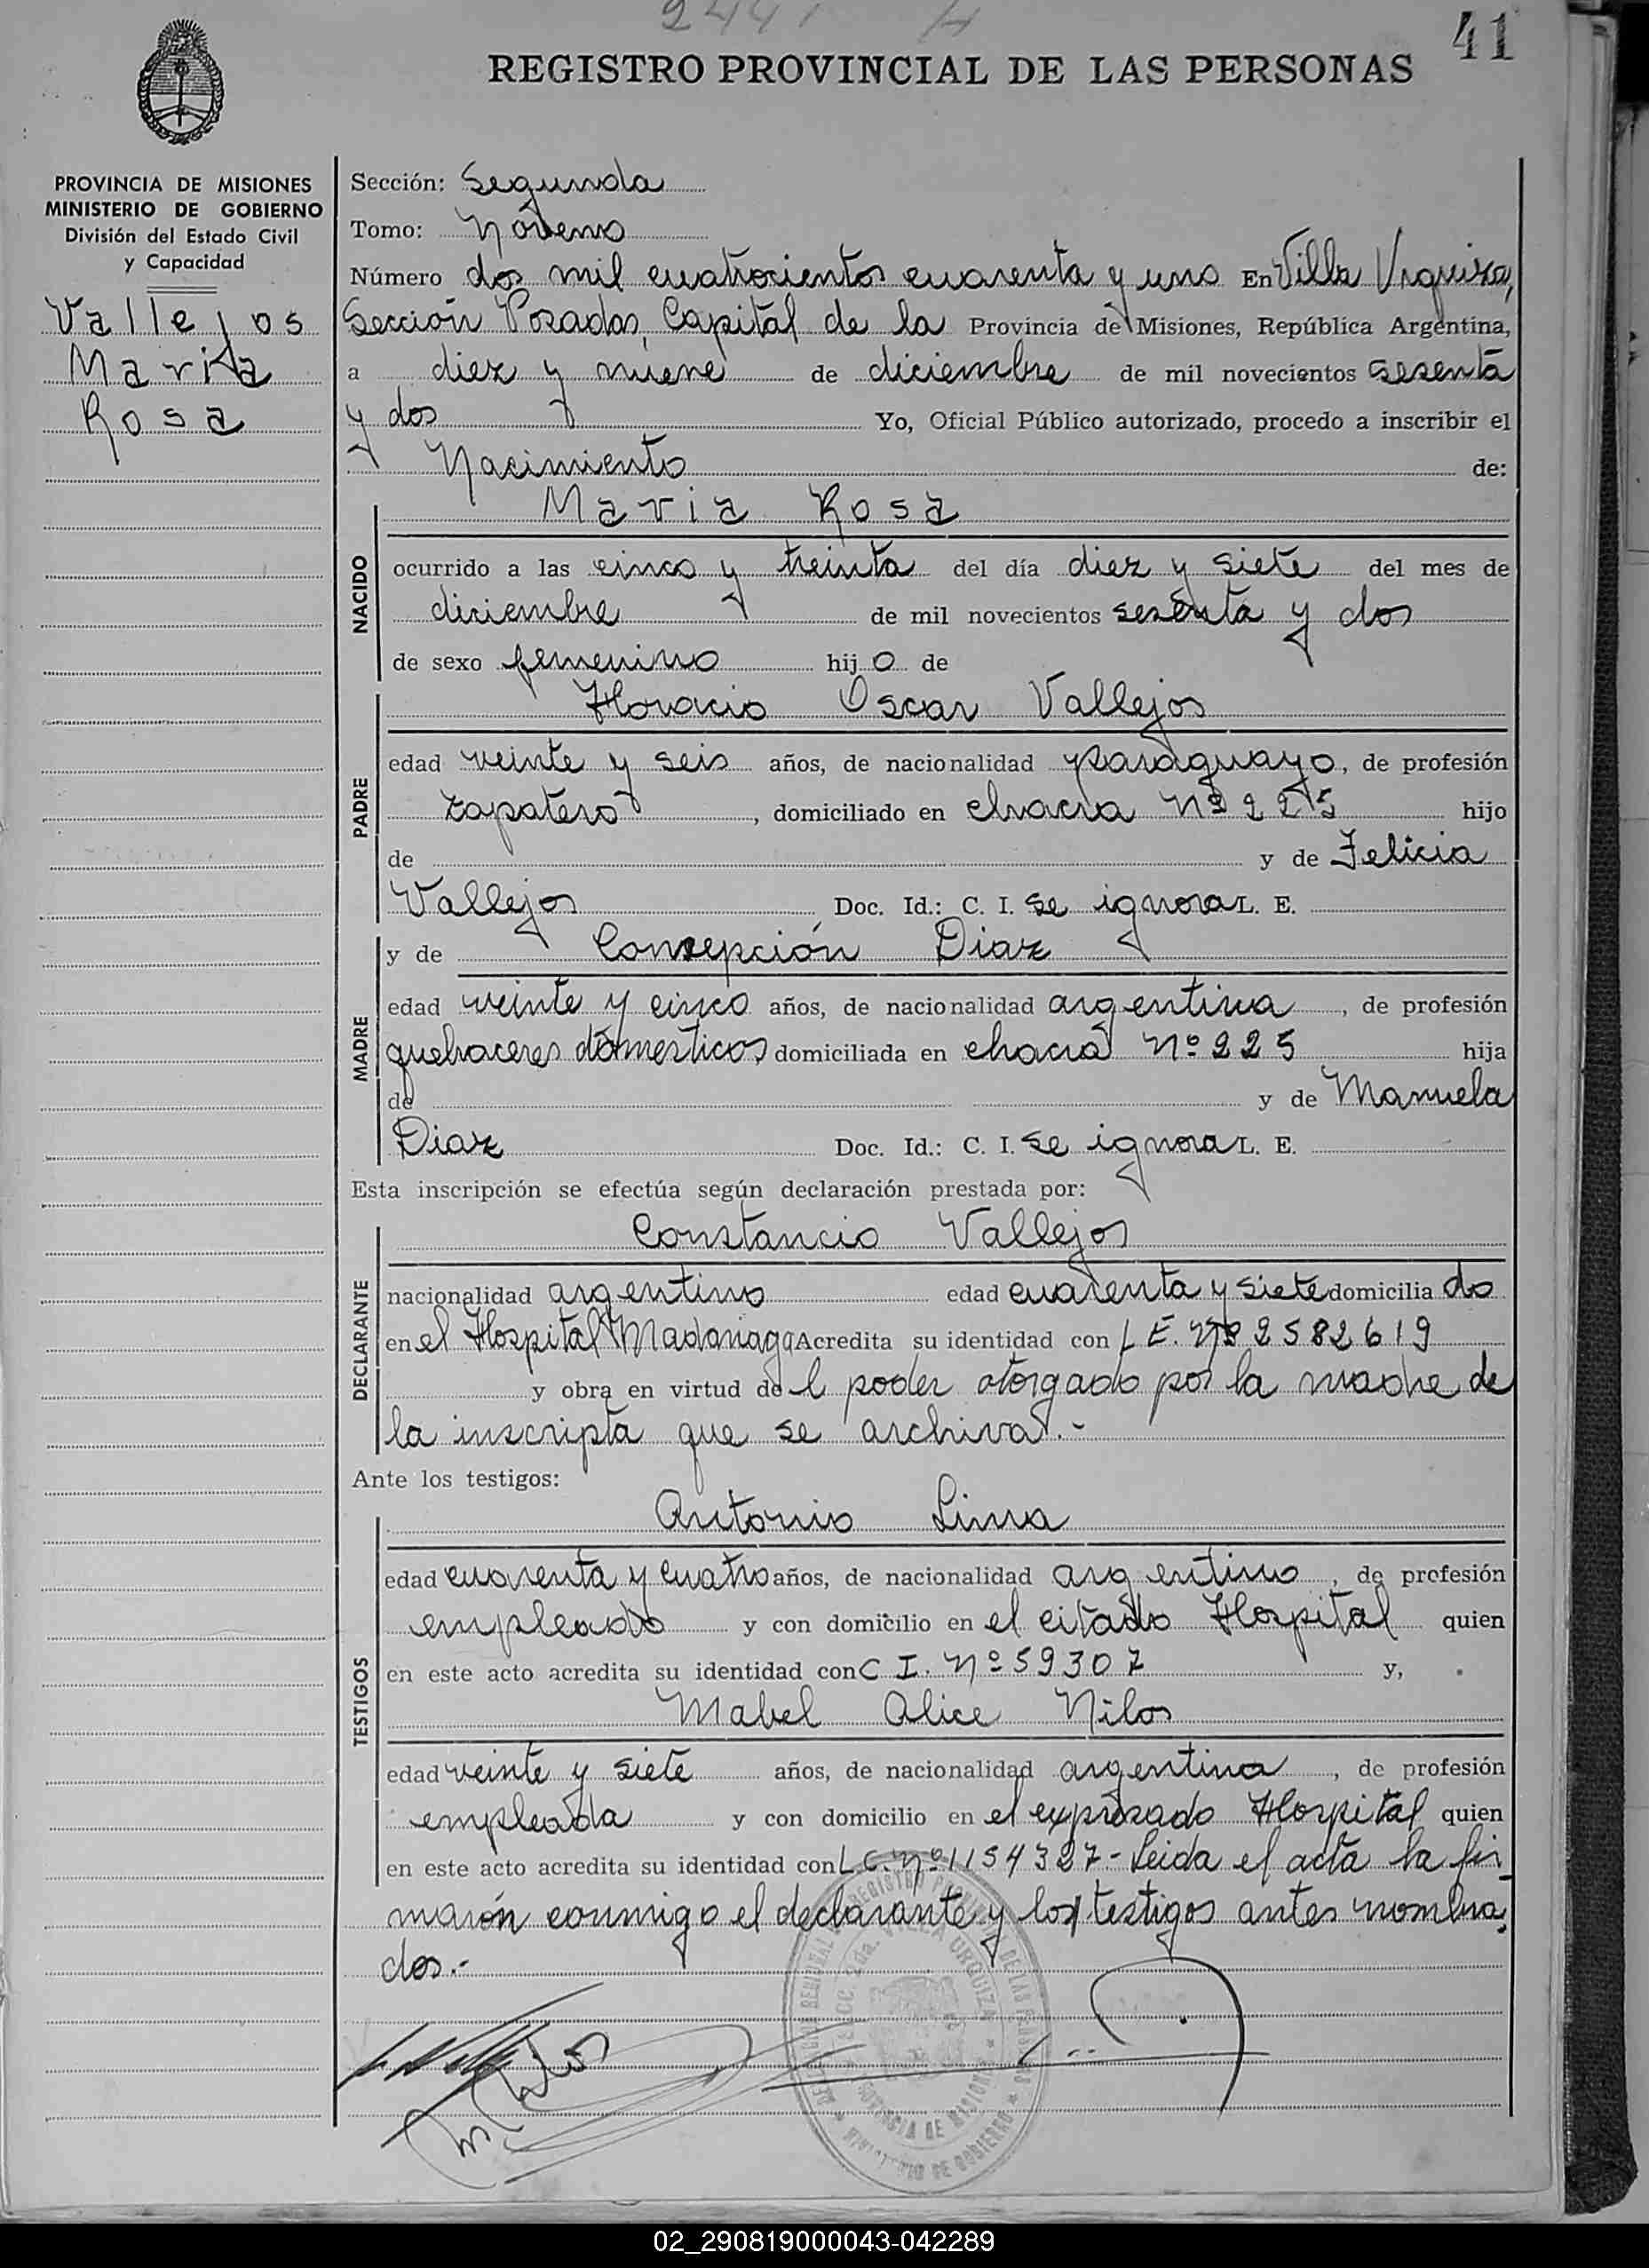 2441
41
REGISTRO PROVINCIAL DE LAS PERSONAS
PROVINCIA DE MISIONES
MINISTERIO DE GOBIERNO
División del Estado Civil
y Capacidad
Vallejos
Maria
Rosa
Sección: Segunda
Tomo: Noveno
Número dos mil cuatrocientos cuarenta y uno En Villa Urquiza,
Sección Posadas, Capital de la Provincia de Misiones, República Argentina,
a diez y nueve de diciembre de mil novecientos sesenta
y dos Yo, Oficial Público autorizado, procedo a inscribir el
Nacimiento de:
NACIDO
Maria Rosa
ocurrido a las cinco y treinta del día diez y siete del mes de
diciembre de mil novecientos sesenta y dos
de sexo femenino hij o de
PADRE
Horacio Oscar Vallejos
edad veinte y seis años, de nacionalidad paraguayo, de profesión
zapatero, domiciliado en chacra Nº 225 hijo
de y de Felicia
Vallejos Doc. Id.: C. I. se ignora L. E.
MADRE
y de Concepción Diaz
edad veinte y cinco años, de nacionalidad argentina, de profesión
quehaceres domesticos domiciliada en chacra Nº 225 hija
de y de Manuela
Diaz Doc. Id.: C. I. se ignora L. E.
Esta inscripción se efectúa según declaración prestada por:
DECLARANTE
Constancio Vallejos
nacionalidad argentino edad cuarenta y siete domicilia do
en el Hospital Madariaga Acredita su identidad con L E. Nº 2582619
y obra en virtud de l poder otorgado por la madre de
la inscripta que se archiva.-
Ante los testigos:
TESTIGOS
Antonio Lima
edad cuarenta y cuatro años, de nacionalidad argentino, de profesión
empleado y con domicilio en el citado Hospital quien
en este acto acredita su identidad con C I. Nº 59307 y,
Mabel Alice Nilos
edad veinte y siete años, de nacionalidad argentina, de profesión
empleada y con domicilio en el expresado Hospital quien
en este acto acredita su identidad con L.C. Nº 1154327- Leida el acta la fir
marón conmigo el declarante y los testigos antes nombra
dos.-
02_290819000043-042289